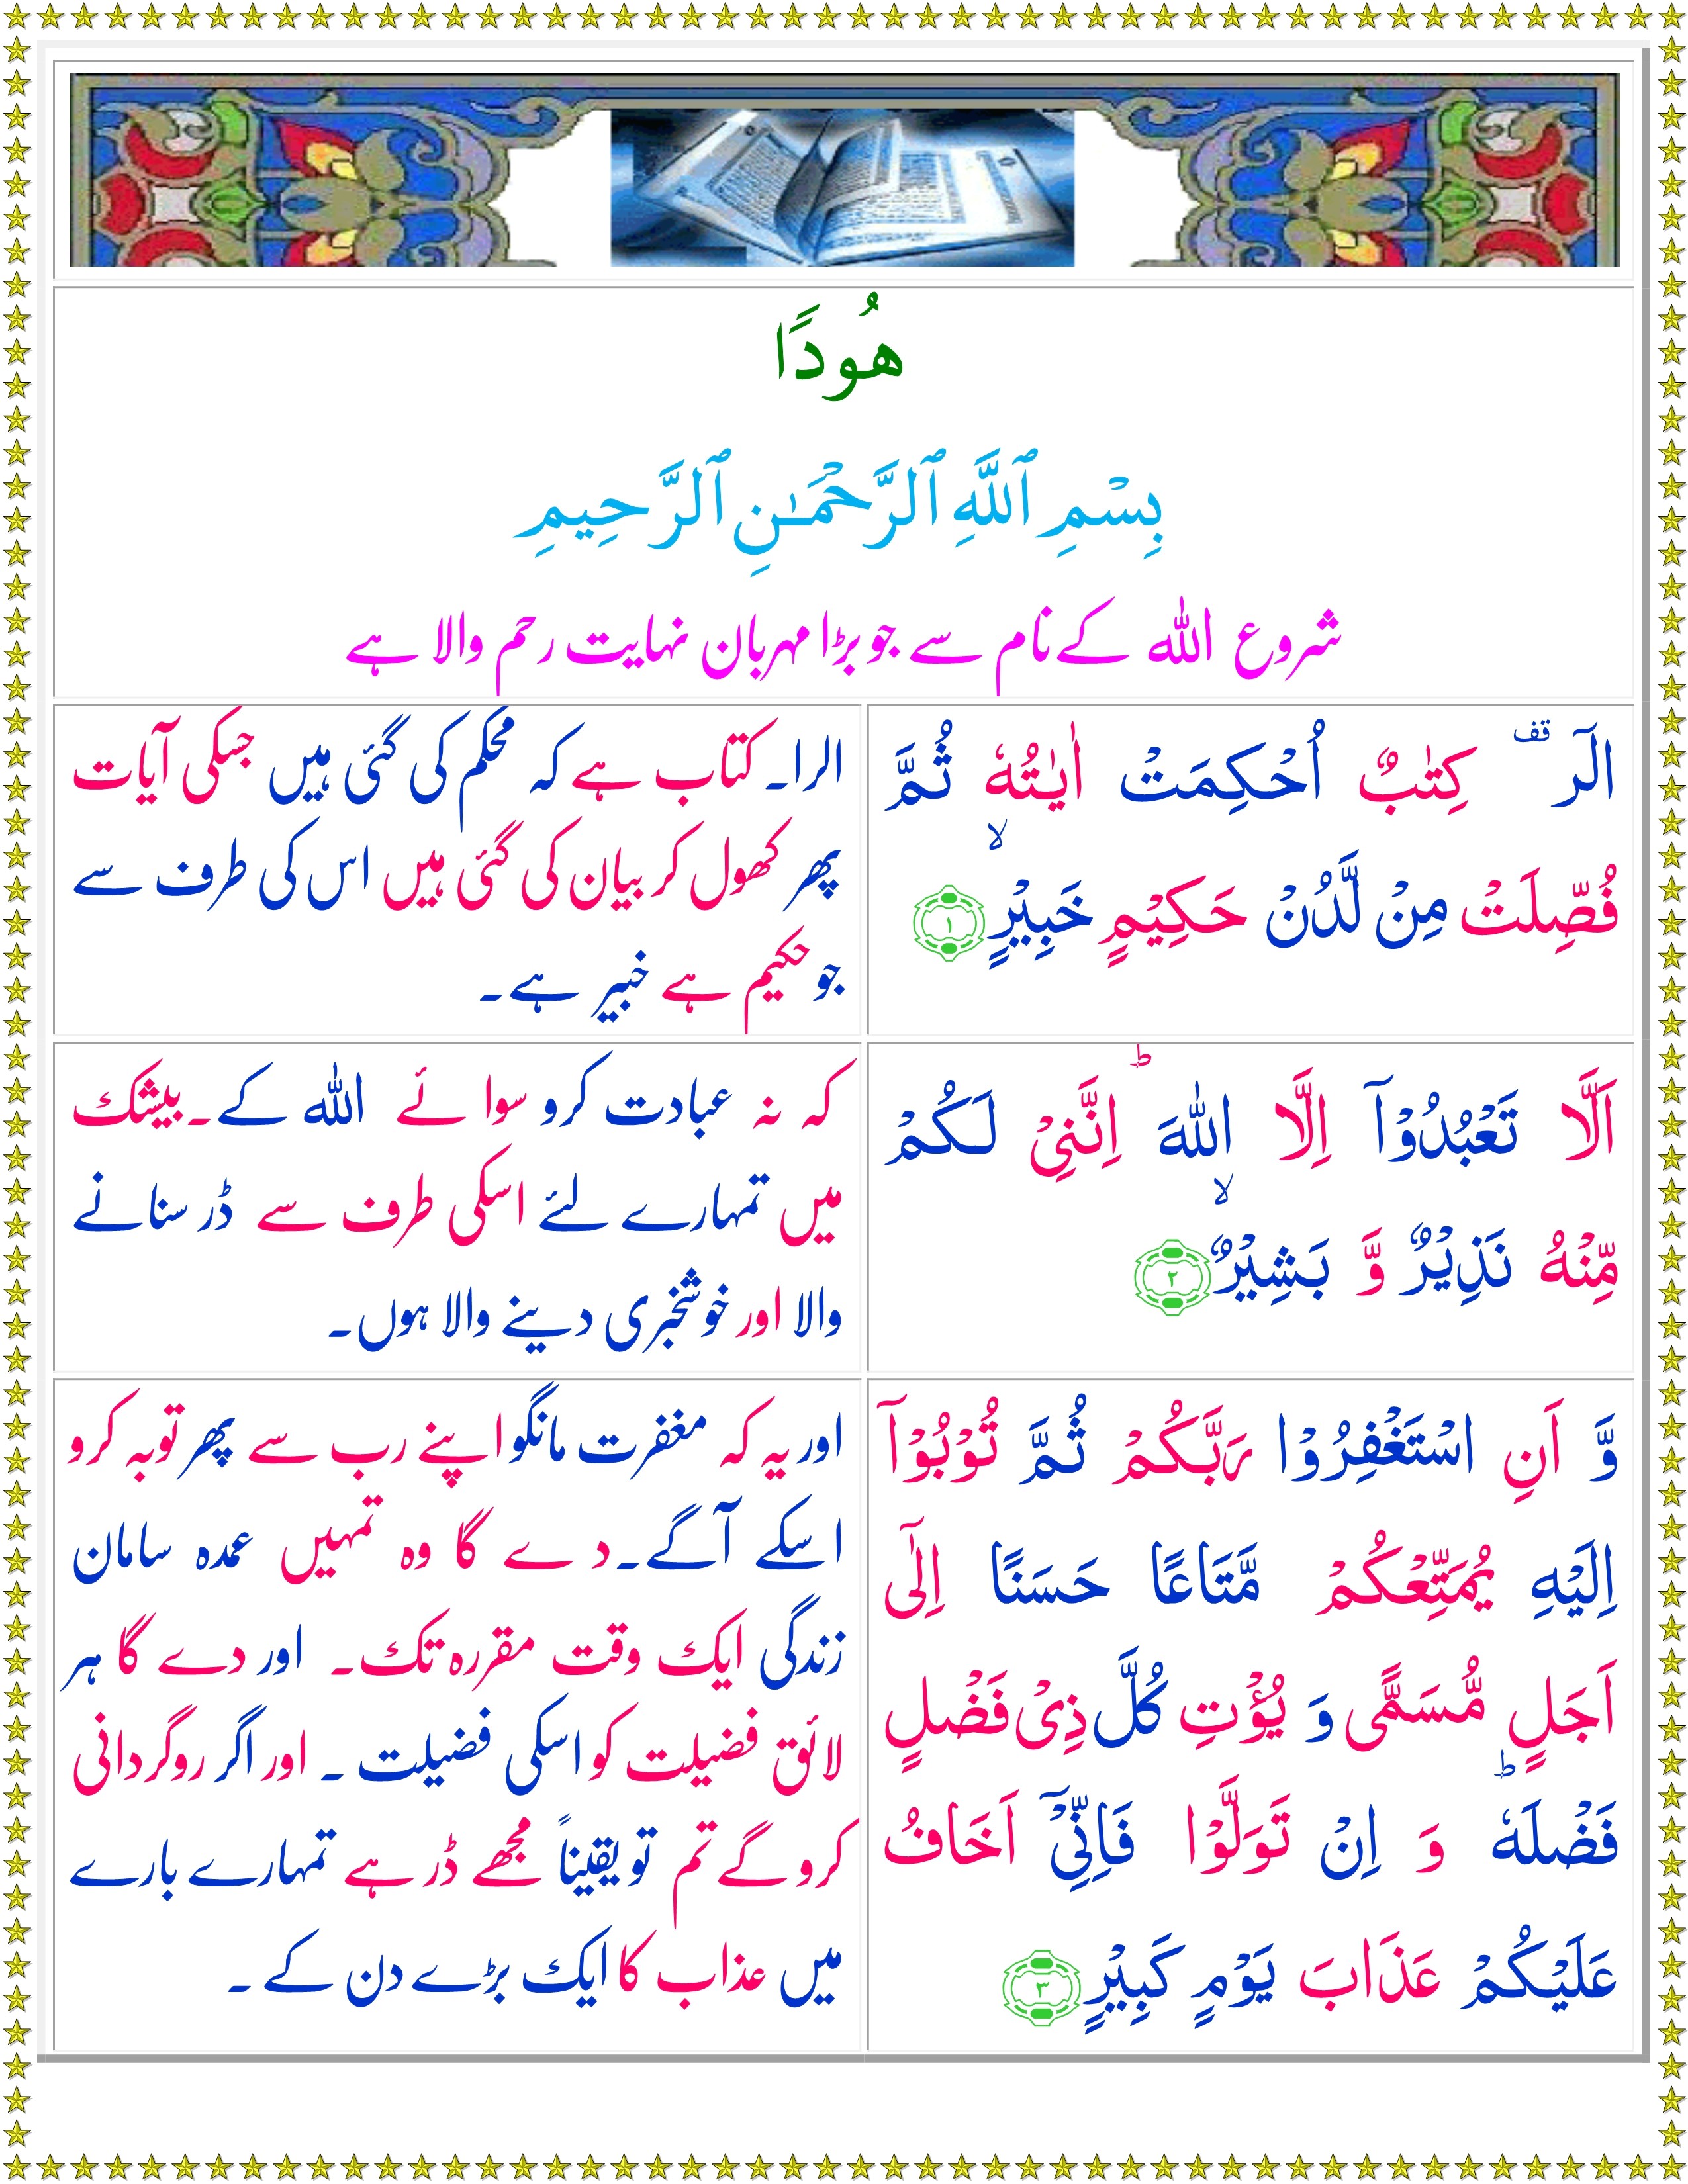 هُودًا
بِسْمِ ٱللَّهِ ٱلرَّحْمَـٰنِ ٱلرَّحِيمِ
شروع اللہ کے نام سے جو بڑا مہربان نہایت رحم والا ہے
الٓرٰ ۟قف كِتٰبٌ اُحْكِمَتْ اٰيٰتُهٗ ثُمَّ
فُصِّلَتْ مِنْ لَّدُنْ حَكِيْمٍ خَبِيْرٍۙ ﴿۱﴾
الرا۔ کتاب ہے کہ محکم کی گئی ہیں جسکی آیات
پھر کھول کر بیان کی گئی ہیں اس کی طرف سے
جو حکیم ہے خبیر ہے۔
اَلَّا تَعْبُدُوْۤا اِلَّا اللّٰهَ ؕ اِنَّنِىْ لَـكُمْ
مِّنْهُ نَذِيْرٌ وَّ بَشِيْرٌۙ ﴿۲﴾
کہ نہ عبادت کرو سوائے اللہ کے۔ بیشک
میں تمہارے لئے اسکی طرف سے ڈر سنانے
والا اور خوشخبری دینے والا ہوں۔
وَّ اَنِ اسْتَغْفِرُوْا رَبَّكُمْ ثُمَّ تُوْبُوْۤا
اِلَيْهِ يُمَتِّعْكُمْ مَّتَاعًا حَسَنًا اِلٰٓى
اَجَلٍ مُّسَمًّى وَ يُؤْتِ كُلَّ ذِىْ فَضْلٍ
فَضْلَهٗ ؕ وَ اِنْ تَوَلَّوْا فَاِنِّىْۤ اَخَافُ
عَلَيْكُمْ عَذَابَ يَوْمٍ كَبِيْرٍ ﴿۳﴾
اور یہ کہ مغفرت مانگو اپنے رب سے پھر توبہ کرو
اسکے آگے۔ دے گا وہ تمہیں عمدہ سامان
زندگی ایک وقت مقررہ تک۔ اور دے گا ہر
لائق فضیلت کو اسکی فضیلت ۔ اور اگر روگردانی
کرو گے تم تو یقیناً مجھے ڈر ہے تمہارے بارے
میں عذاب کا ایک بڑے دن کے ۔